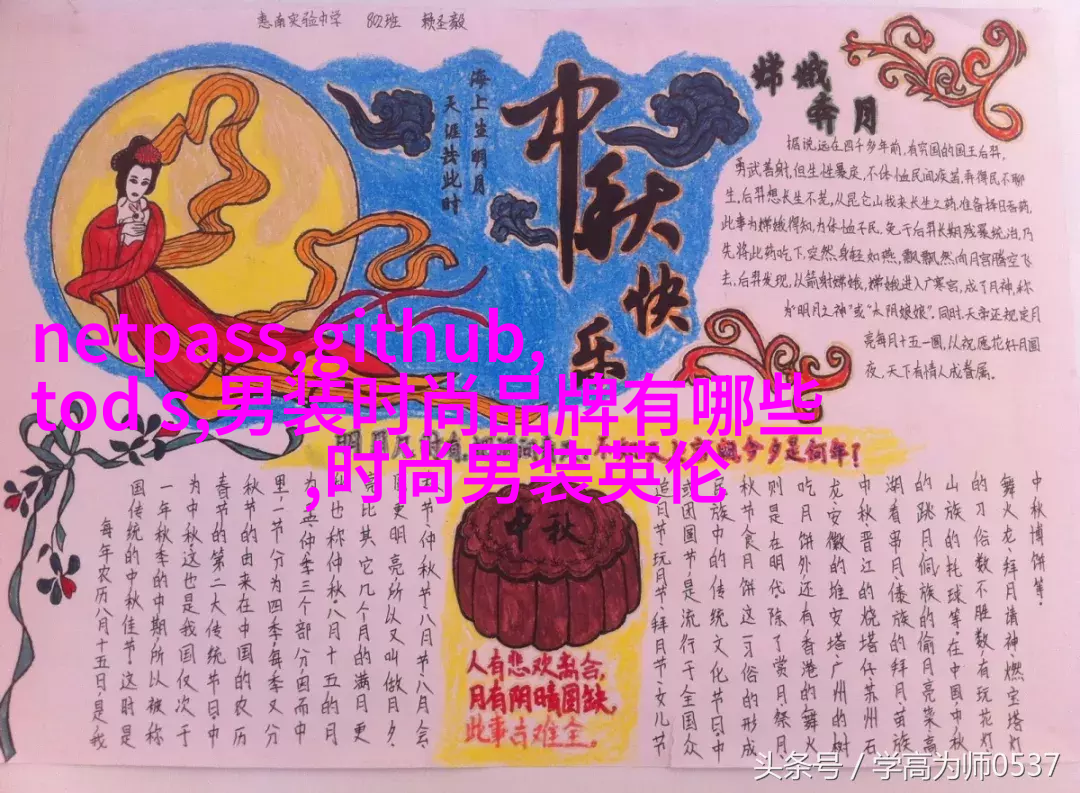 惠南实验中学 802班 赖圣毅
海上生明月
天涯共此时
中秋快乐
嫦娥奔月
据说,远在四千多年前,有穷国的国王后羿,
勇武善射,但生性暴戾,不体恤民间疾苦,弄得民不聊
生。后羿想长生不老,从昆仑山找来长生之药,准备择日吞药,
此事为嫦娥得知,为体恤平民,免于后羿长期残暴统治,乃
先将此药吃下,突然身轻如燕,飘飘然向月宫腾空飞
去。后羿发现,以箭射嫦娥,嫦娥进入广寒宫,成了月神,称
为“明月之神”或“太阴娘娘”。同时,天帝还规定月
亮每月十五一圆,以祝愿花好月圆
夜,天下有情人成眷属。
netpass,github,
tod s,男装时尚品牌有哪些
,时尚男装英伦
明月几时有,把酒问青天。不知天上宫阙今夕是何年?
每年农历八月十五日,是我
国传统的中秋佳节。这时是
一年秋季的中期,所以被称
为中秋,这也是我国仅次于
春节的第二大传统节日。中
秋节的由来在中国的农历
里,一年分为四季,每季又分
为孟仲季三个部分,因而中
秋也称仲秋。八月十五的月
亮比其它几个月的满月更
圆更明亮,所以又叫做月夕、
秋节、仲秋节、八月节、八月会
追月节、玩月节、拜月节、女儿节
或团圆节,是流行于全国众
多民族中的传统文化节日。中
秋节食月饼这一习俗的形成
则是在明代。除了赏月、祭月
吃月饼外,还有香港的舞火
龙、安徽的堆宝塔、广州的树
中秋、晋江的烧塔仔、苏州石
湖看串月、傣族的拜月、苗族
的跳月、侗族的偷月亮菜、高
山族的托球等。在中国,中秋
的习俗数不胜数,有玩花灯
舞火龙、拜月请神、燃宝塔灯
中秋博饼等。
中秋
人有悲欢离合,
月有阴晴圆缺,
此事古难全。
头条号 / 学高为师0537